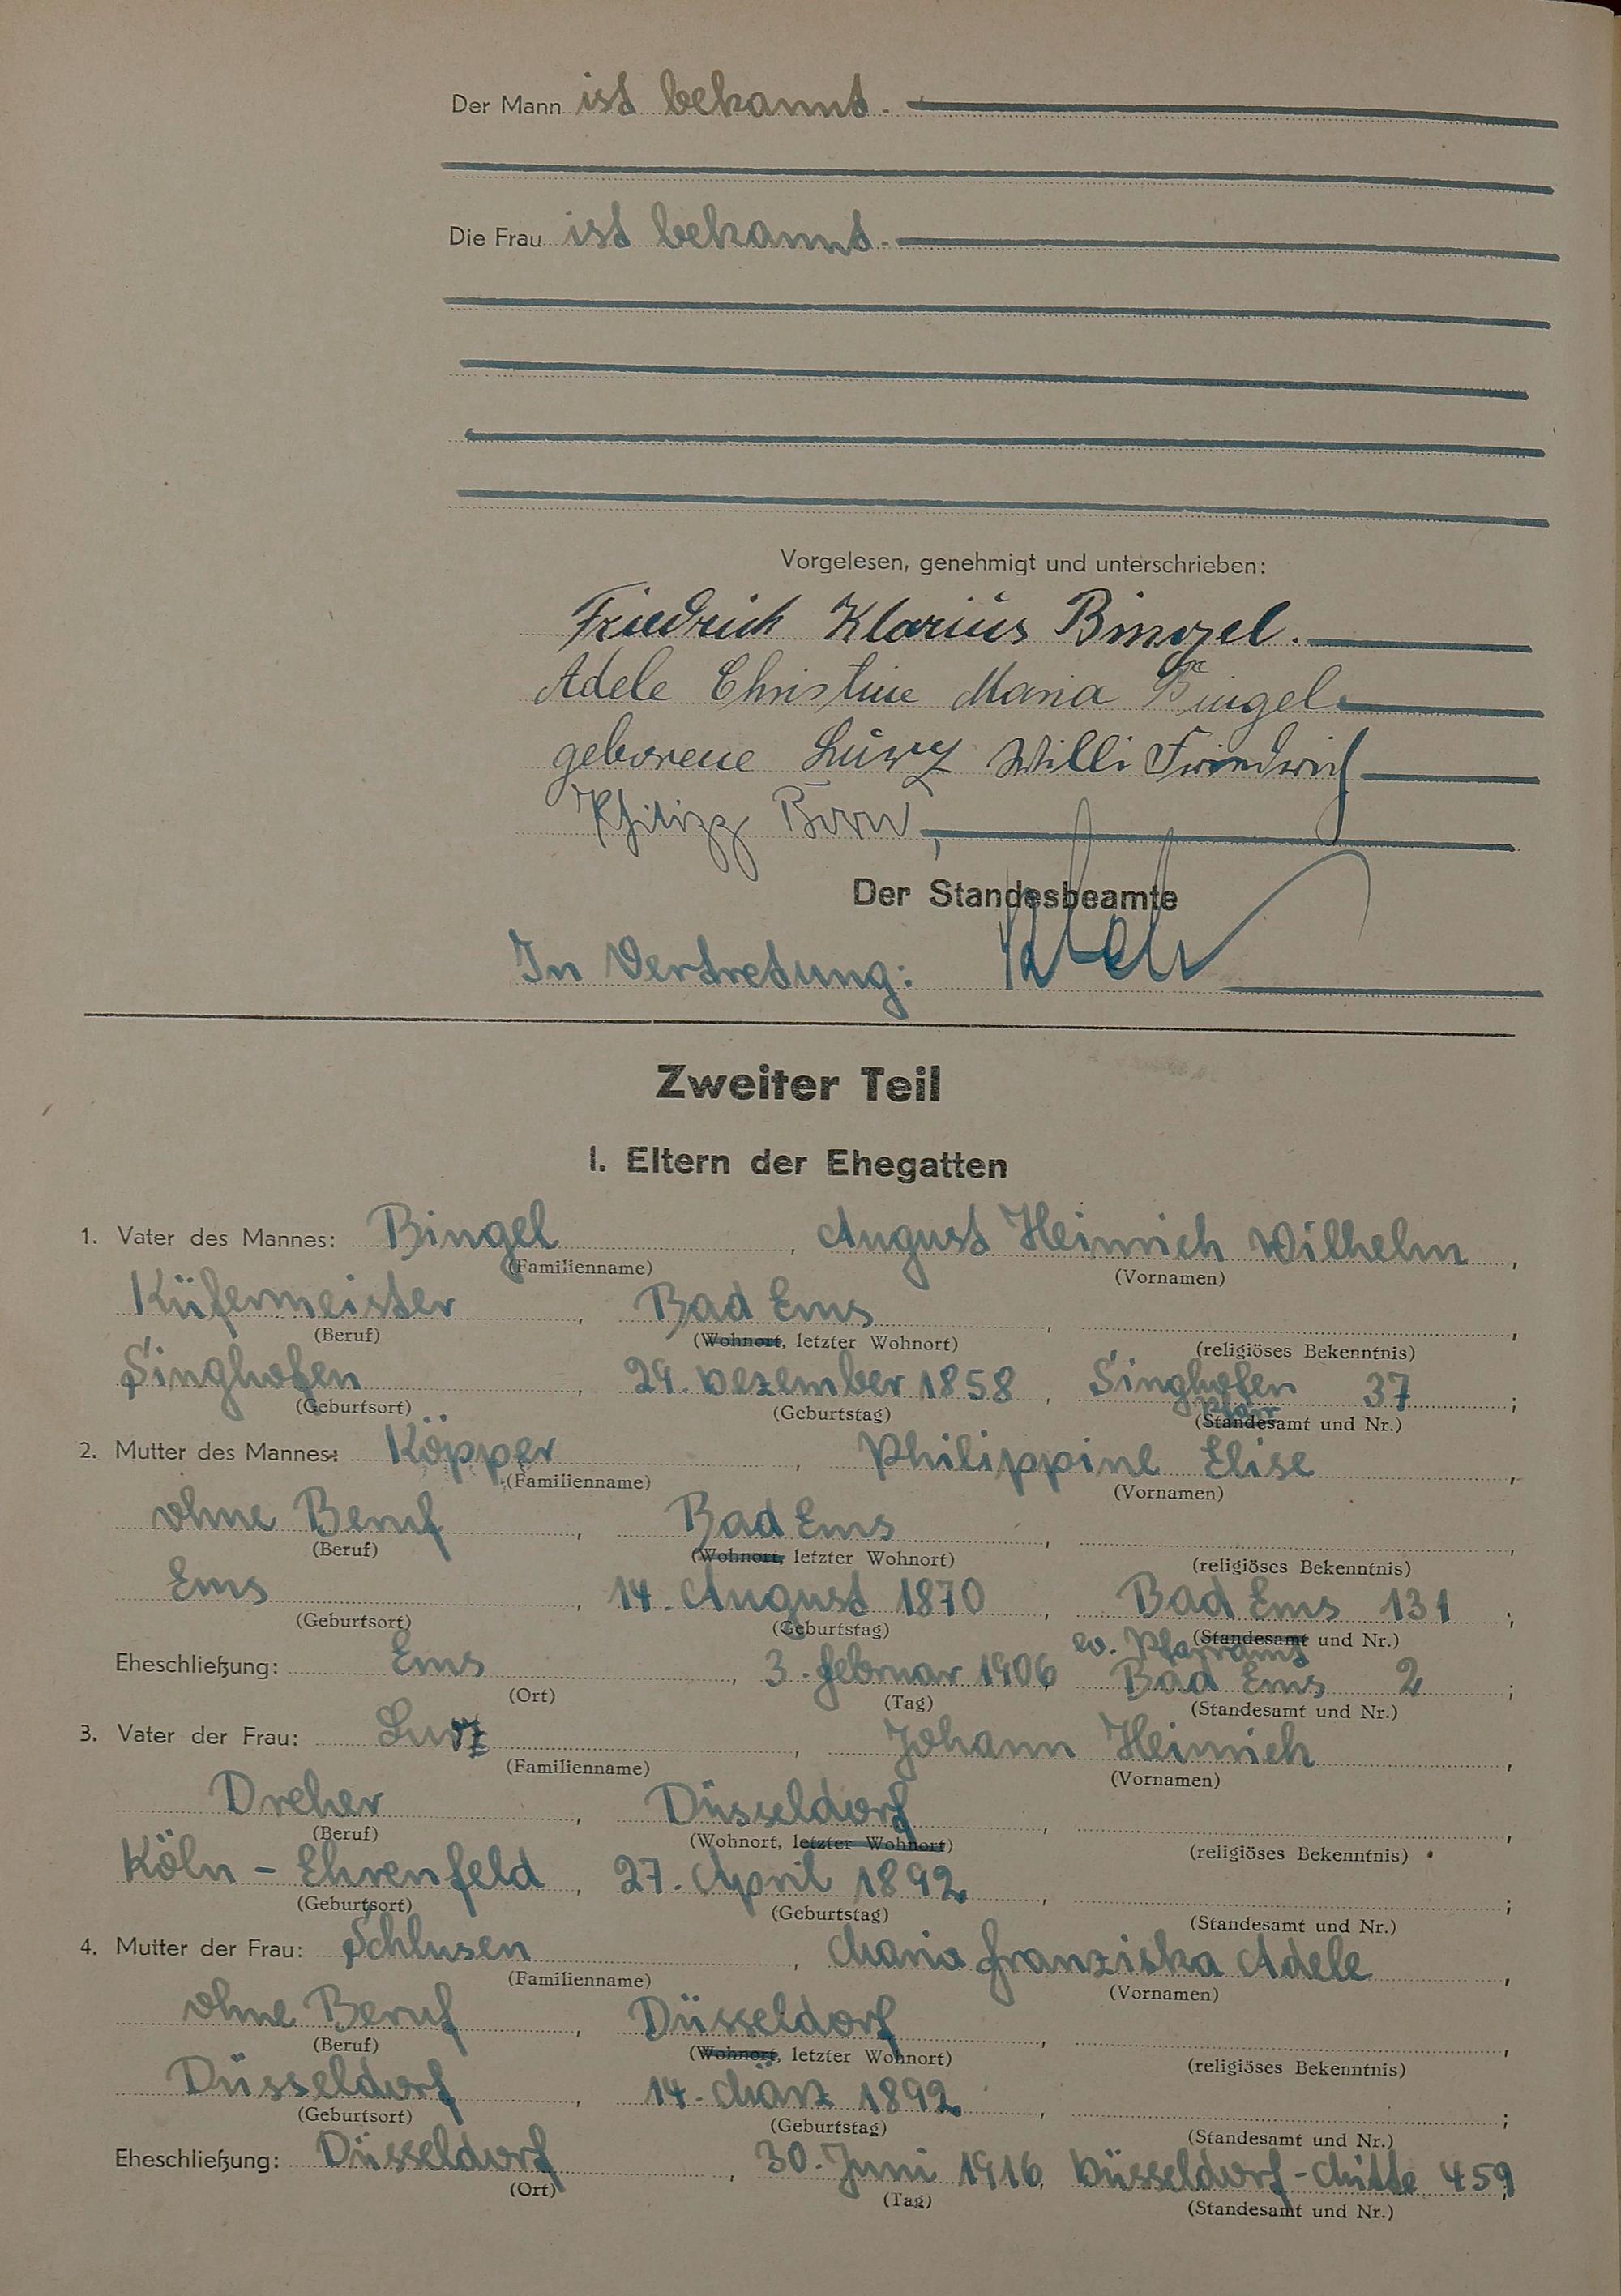 Der Mann ist bekannt.
Die Frau ist bekannt.
Vorgelesen, genehmigt und unterschrieben:
Friedrich Klarius Bingel.
Adele Christine Maria Bingel
geborene Lurz Willi Friedrich
Philipp
Der Standesbeamte
In Vertretung:
Zweiter Teil
I. Eltern der Ehegatten
1. Vater des Mannes: Bingel, August Heinrich Wilhelm,
(Familienname) (Vornamen)
Küfermeister, Bad Ems,
(Beruf) (Wohnort, letzter Wohnort) (religiöses Bekenntnis)
Singhofen, 29. Dezember 1858, Singhofen 37;
Pfarr
(Geburtsort) (Geburtstag) (Standesamt und Nr.)
2. Mutter des Mannes: Köpper, Philippine Elise,
(Familienname) (Vornamen)
ohne Beruf, Bad Ems,
(Beruf) (Wohnort, letzter Wohnort) (religiöses Bekenntnis)
Ems, 14. August 1870, Bad Ems 131;
(Geburtsort) (Geburtstag) (Standesamt und Nr.)
ev. Pfarramt
Eheschließung: Ems, 3. Februar 1906, Bad Ems 2;
(Ort) (Tag) (Standesamt und Nr.)
3. Vater der Frau: Lurz, Johann Heinrich,
(Familienname) (Vornamen)
Dreher, Düsseldorf,
(Beruf) (Wohnort, letzter Wohnort) (religiöses Bekenntnis)
Köln-Ehrenfeld, 27. April 1892,;
(Geburtsort) (Geburtstag) (Standesamt und Nr.)
4. Mutter der Frau: Schlusen, Maria Franziska Adele,
(Familienname) (Vornamen)
ohne Beruf, Düsseldorf,
(Beruf) (Wohnort, letzter Wohnort) (religiöses Bekenntnis)
Düsseldorf, 14. März 1892,;
(Geburtsort) (Geburtstag) (Standesamt und Nr.)
Eheschließung: Düsseldorf, 30. Juni 1916, Düsseldorf-Mitte 459;
(Ort) (Tag) (Standesamt und Nr.)